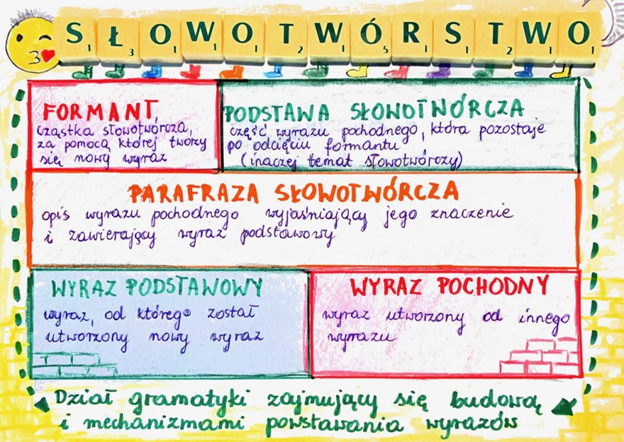 SŁOWOTWÓRSTWO
FORMANT
cząstka słowotwórcza,
za pomocą której tworzy
się nowy wyraz
PODSTAWA SŁOWOTWÓRCZA
część wyrazu pochodnego, która pozostaje
po odcięciu formantu
(inaczej temat słowotwórczy)
PARAFRAZA SŁOWOTWÓRCZA
opis wyrazu pochodnego wyjaśniający jego znaczenie
i zawierający wyraz podstawowy
WYRAZ PODSTAWOWY
wyraz, od którego został
utworzony nowy wyraz
WYRAZ POCHODNY
wyraz utworzony od innego
wyrazu
Dział gramatyki zajmujący się budową
i mechanizmami powstawania wyrazów